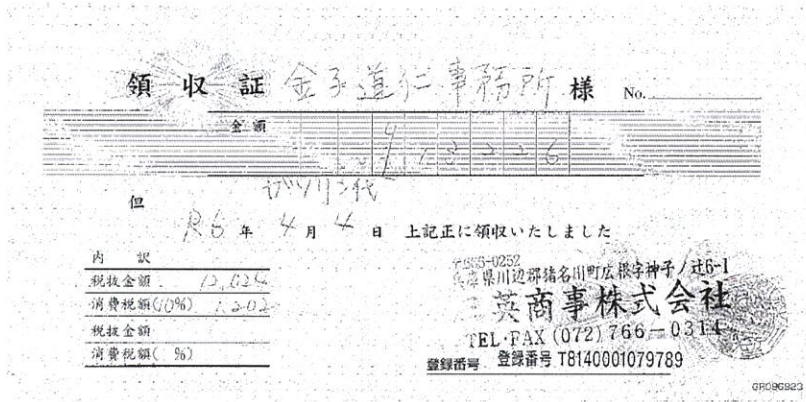 領収証 金子道仁事務所 様 No.
金額 ¥13226
但 ガソリン代
R6年 4月 4日 上記正に領収いたしました
内訳
税抜金額 12,024
消費税額(10%) 1,202
税抜金額
消費税額( %)
〒666-0252
兵庫県川辺郡猪名川町広根字神子ノ辻6-1
三英商事株式会社
TEL・FAX (072) 766-0314
登録番号 登録番号 T8140001079789